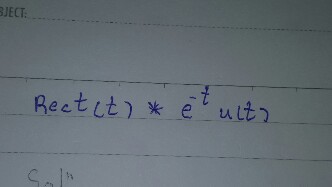 SUBJECT:
Rect(t) * e^-t u(t)
Sol^n